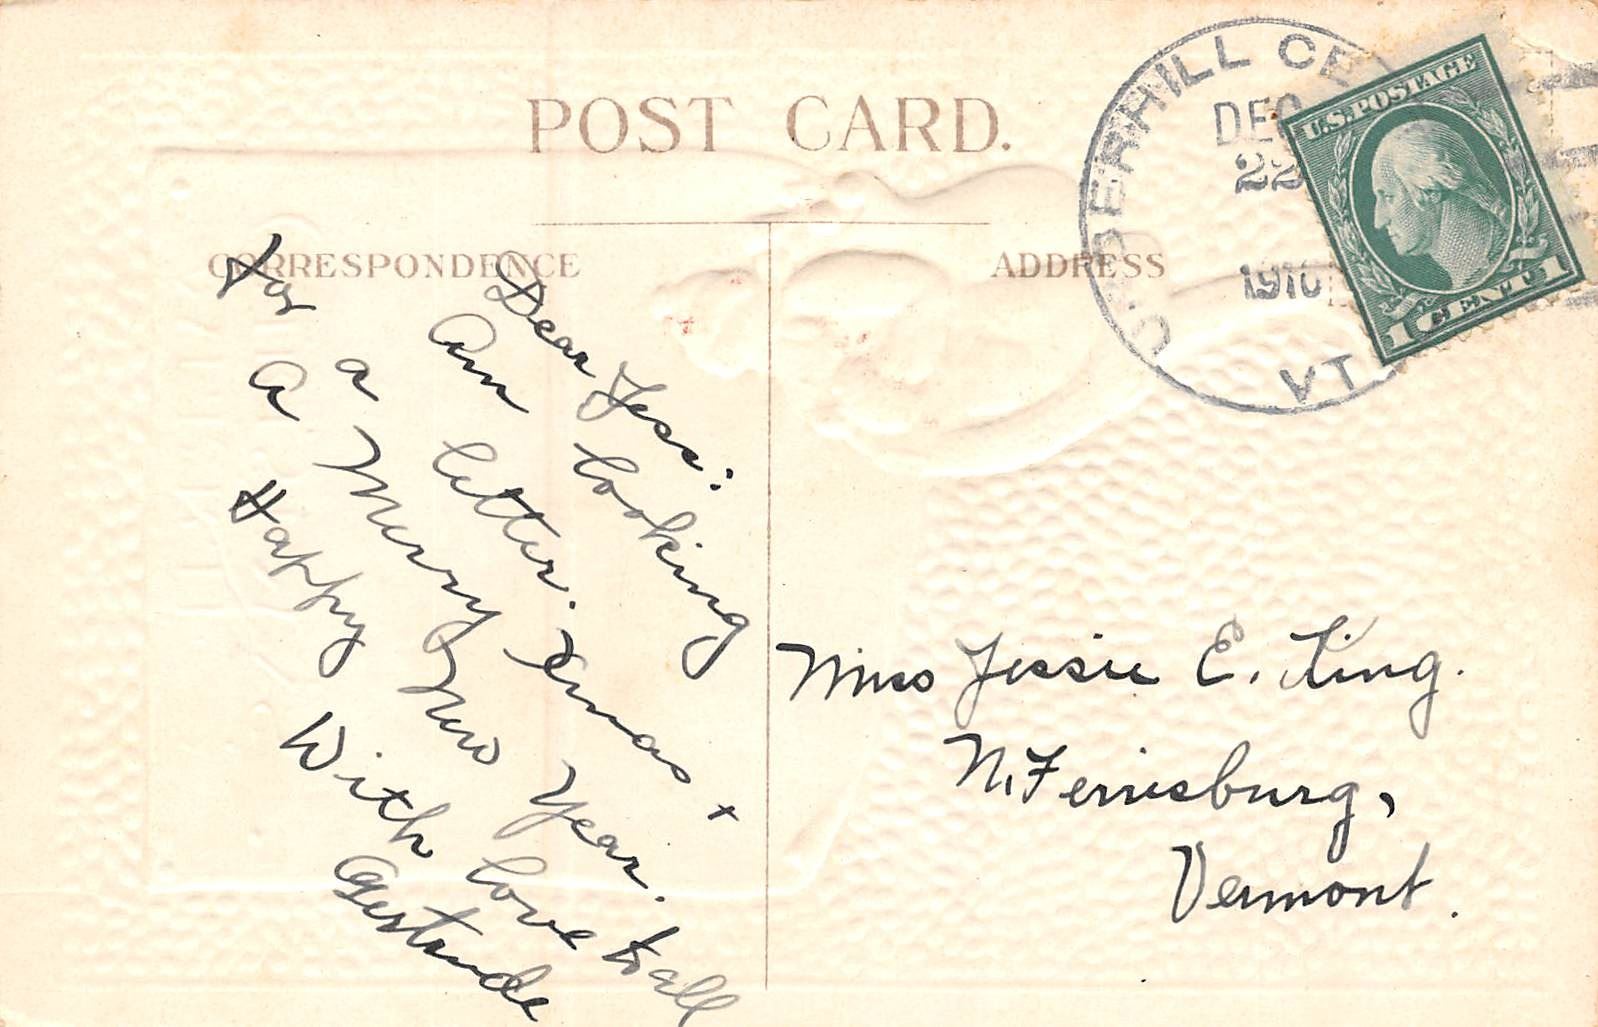 POST CARD.
CORRESPONDENCE
ADDRESS
UNDERHILL CE
DEC
22
1910
VT
U.S. POSTAGE
1 CENT 1
Dear Jess:
Am looking
For a letter.
A Merry Xmas +
Happy New Year.
With love to all
Gertrude
Miss Jessie E. King.
N. Ferrisburg,
Vermont.